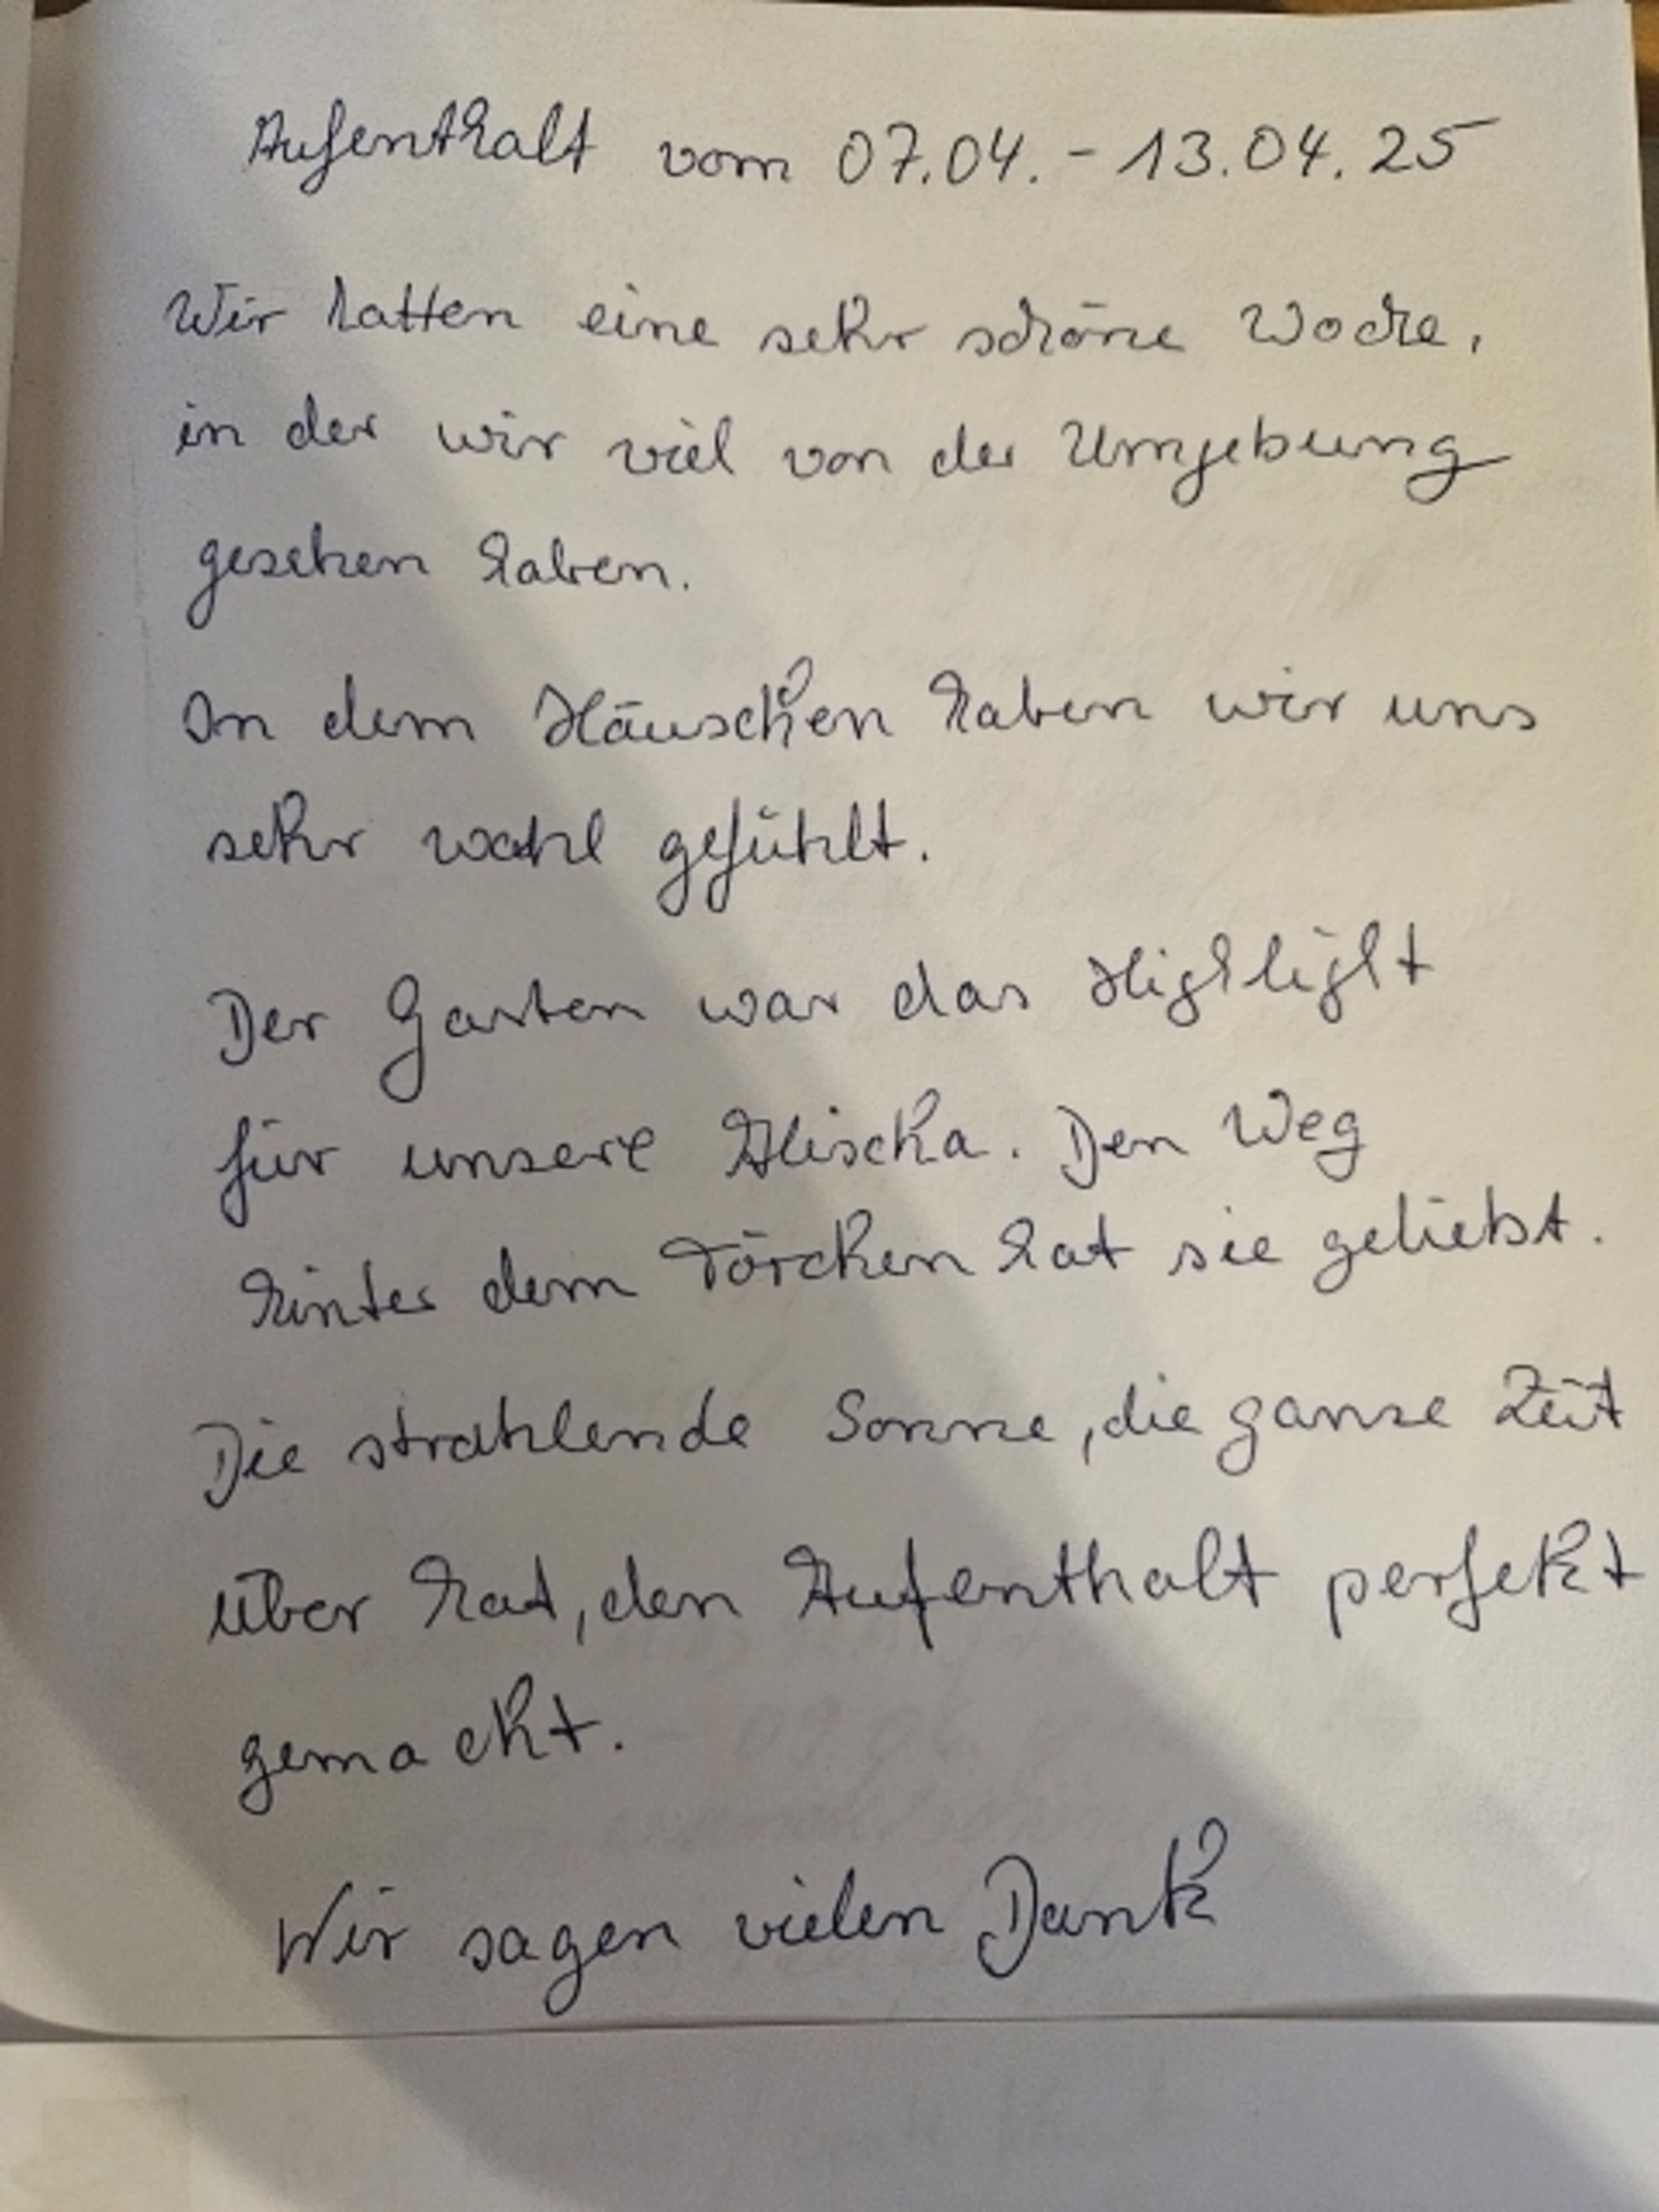 Aufenthalt vom 07.04. - 13.04.25
Wir hatten eine sehr schöne Woche,
in der wir viel von der Umgebung
gesehen haben.
In dem Häuschen haben wir uns
sehr wohl gefühlt.
Der Garten war das Highlight
für unsere Alischa. Den Weg
hinter dem Törchen hat sie geliebt.
Die strahlende Sonne, die ganze Zeit
über hat, den Aufenthalt perfekt
gemacht.
Wir sagen vielen Dank